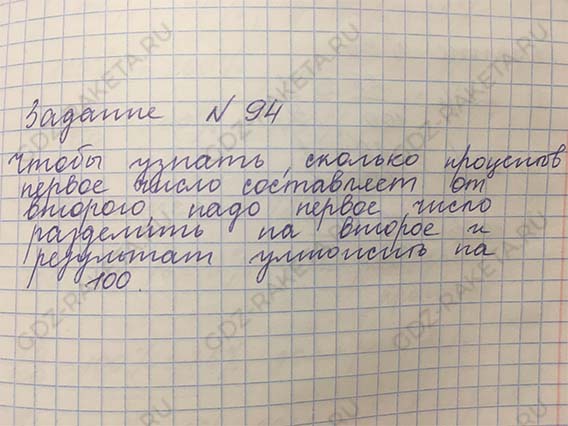 Задание N 94
Чтобы узнать, сколько процентов
первое число составляет от
второго, надо первое число
разделить на второе и
результат умножить на
100.
GDZ-RAKETA.RU
GDZ-RAKETA.RU
GDZ-RAKETA.RU
GDZ-RAKETA.RU